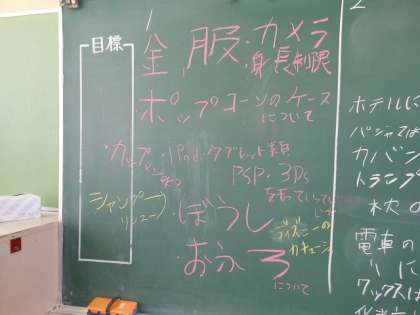 1
目標
金、服・カメラ
身長制限
ポップコーンのケース
について
・カップメン
・iPod・タブレット類
PSP・3Ds
を持っていって
シャンプー
リンス
・ぼうし
ディズニーの
カチューシャ
・おふろ
について
2
ホテルに
パジャマは
カバン
トランプ
枕の
電車の
ワックスは